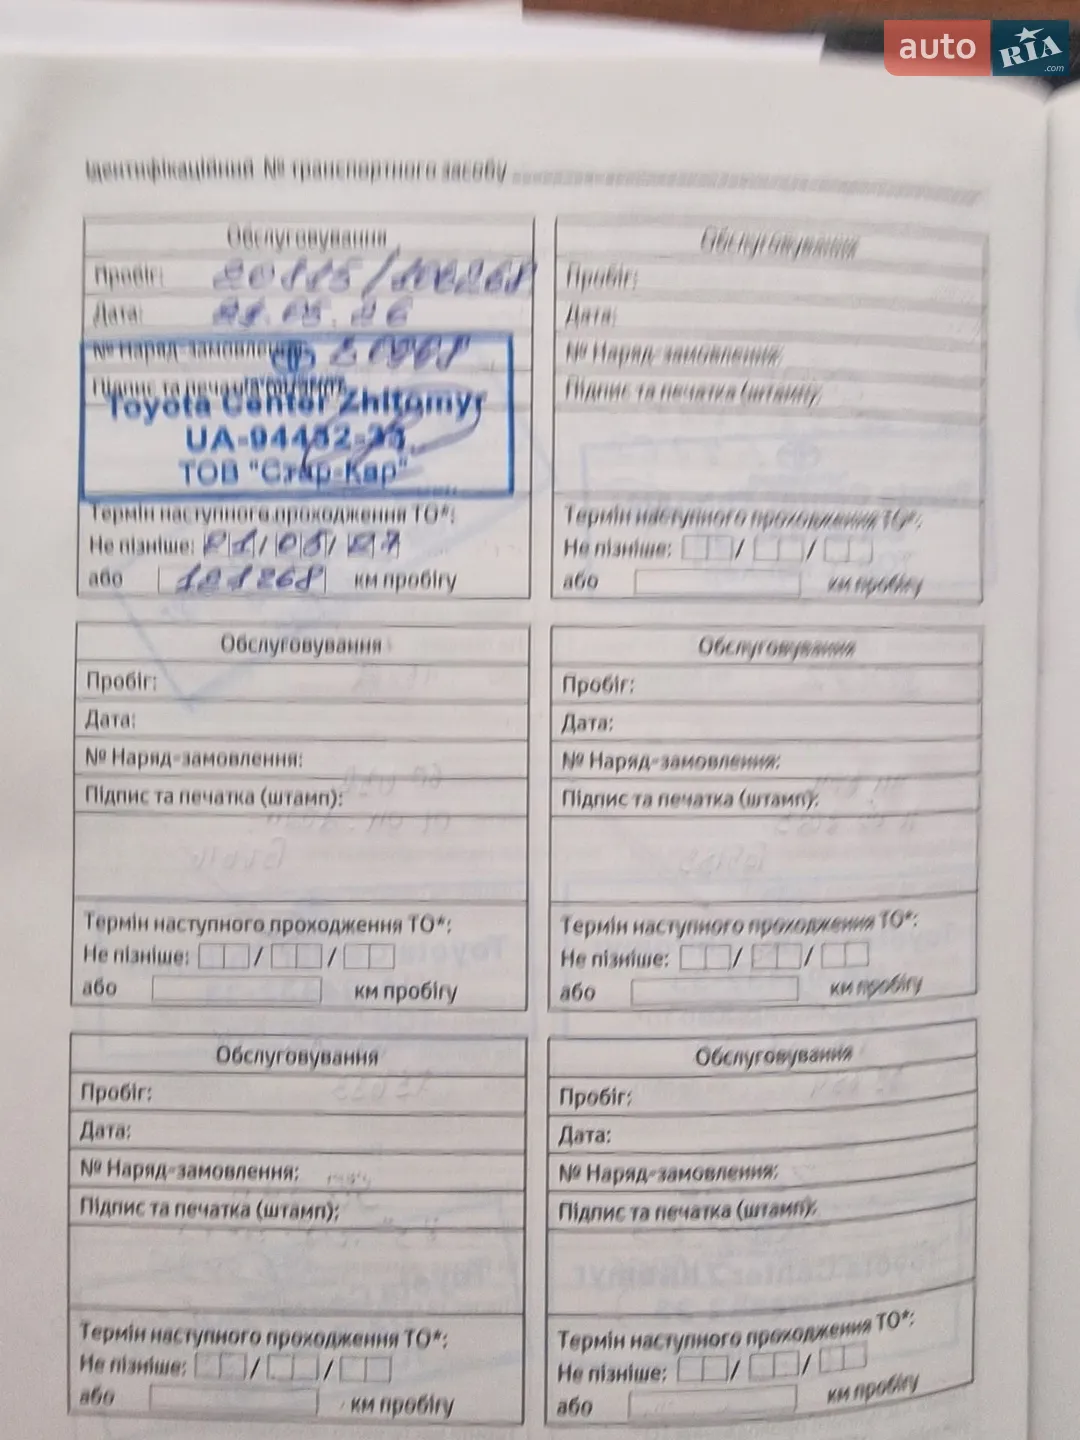 auto RIA.com
Ідентифікаційний № транспортного засобу
Обслуговування
Пробіг:
Дата: 21.05.26
№ Наряд-замовлення:
Підпис та печатка (штамп):
Toyota Center Zhitomyr
ТОВ "Стар-Кар"
Термін наступного проходження ТО*:
Не пізніше: 21/05/27
або 121268 км пробігу
Обслуговування
Пробіг:
Дата:
№ Наряд-замовлення:
Підпис та печатка (штамп):
Термін наступного проходження ТО*:
Не пізніше: / /
або км пробігу
Обслуговування
Пробіг:
Дата:
№ Наряд-замовлення:
Підпис та печатка (штамп):
Термін наступного проходження ТО*:
Не пізніше: / /
або км пробігу
Обслуговування
Пробіг:
Дата:
№ Наряд-замовлення:
Підпис та печатка (штамп):
Термін наступного проходження ТО*:
Не пізніше: / /
або км пробігу
Обслуговування
Пробіг:
Дата:
№ Наряд-замовлення:
Підпис та печатка (штамп):
Термін наступного проходження ТО*:
Не пізніше: / /
або км пробігу
Обслуговування
Пробіг:
Дата:
№ Наряд-замовлення:
Підпис та печатка (штамп):
Термін наступного проходження ТО*:
Не пізніше: / /
або км пробігу